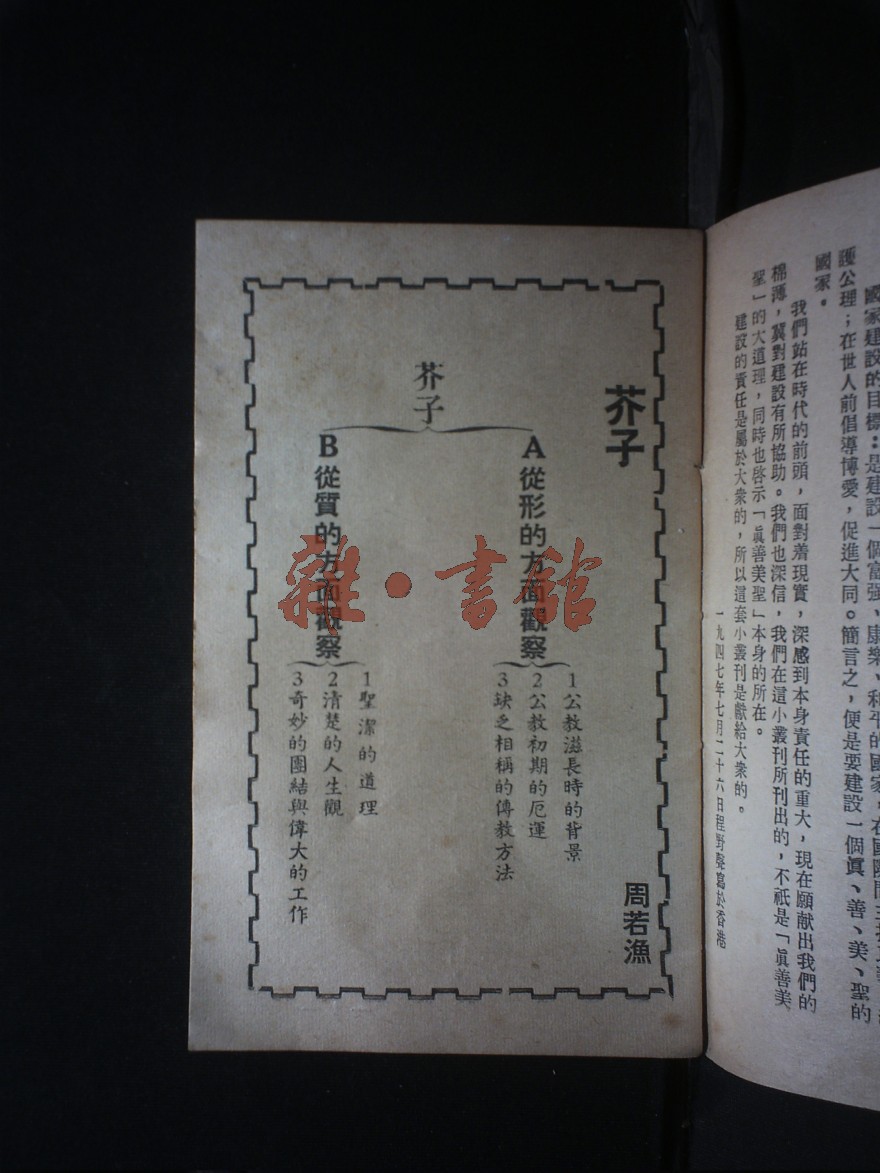 國家建設的目標：是建設一個富强、康樂、和平的國家，在國際間主持正義，
護公理；在世人前倡導博愛，促進大同。簡言之，便是要建設一個眞、善、美、聖的
國家。
我們站在時代的前頭，面對着現實，深感到本身責任的重大，現在願献出我們的
棉薄，冀對建設有所協助。我們也深信，我們在這小叢刊所刊出的，不祇是「眞善美
聖」的大道理，同時也啓示「眞善美聖」本身的所在。
建設的責任是屬於大衆的，所以這套小叢刊是獻給大衆的。
一九四七年七月二十六日程野聲寫於香港
芥子
周若漁
芥子
A從形的方面觀察
1公教滋長時的背景
2公教初期的厄運
3缺乏相稱的傳教方法
B從質的方面觀察
1聖潔的道理
2清楚的人生觀
3奇妙的團結與偉大的工作
雜·書館